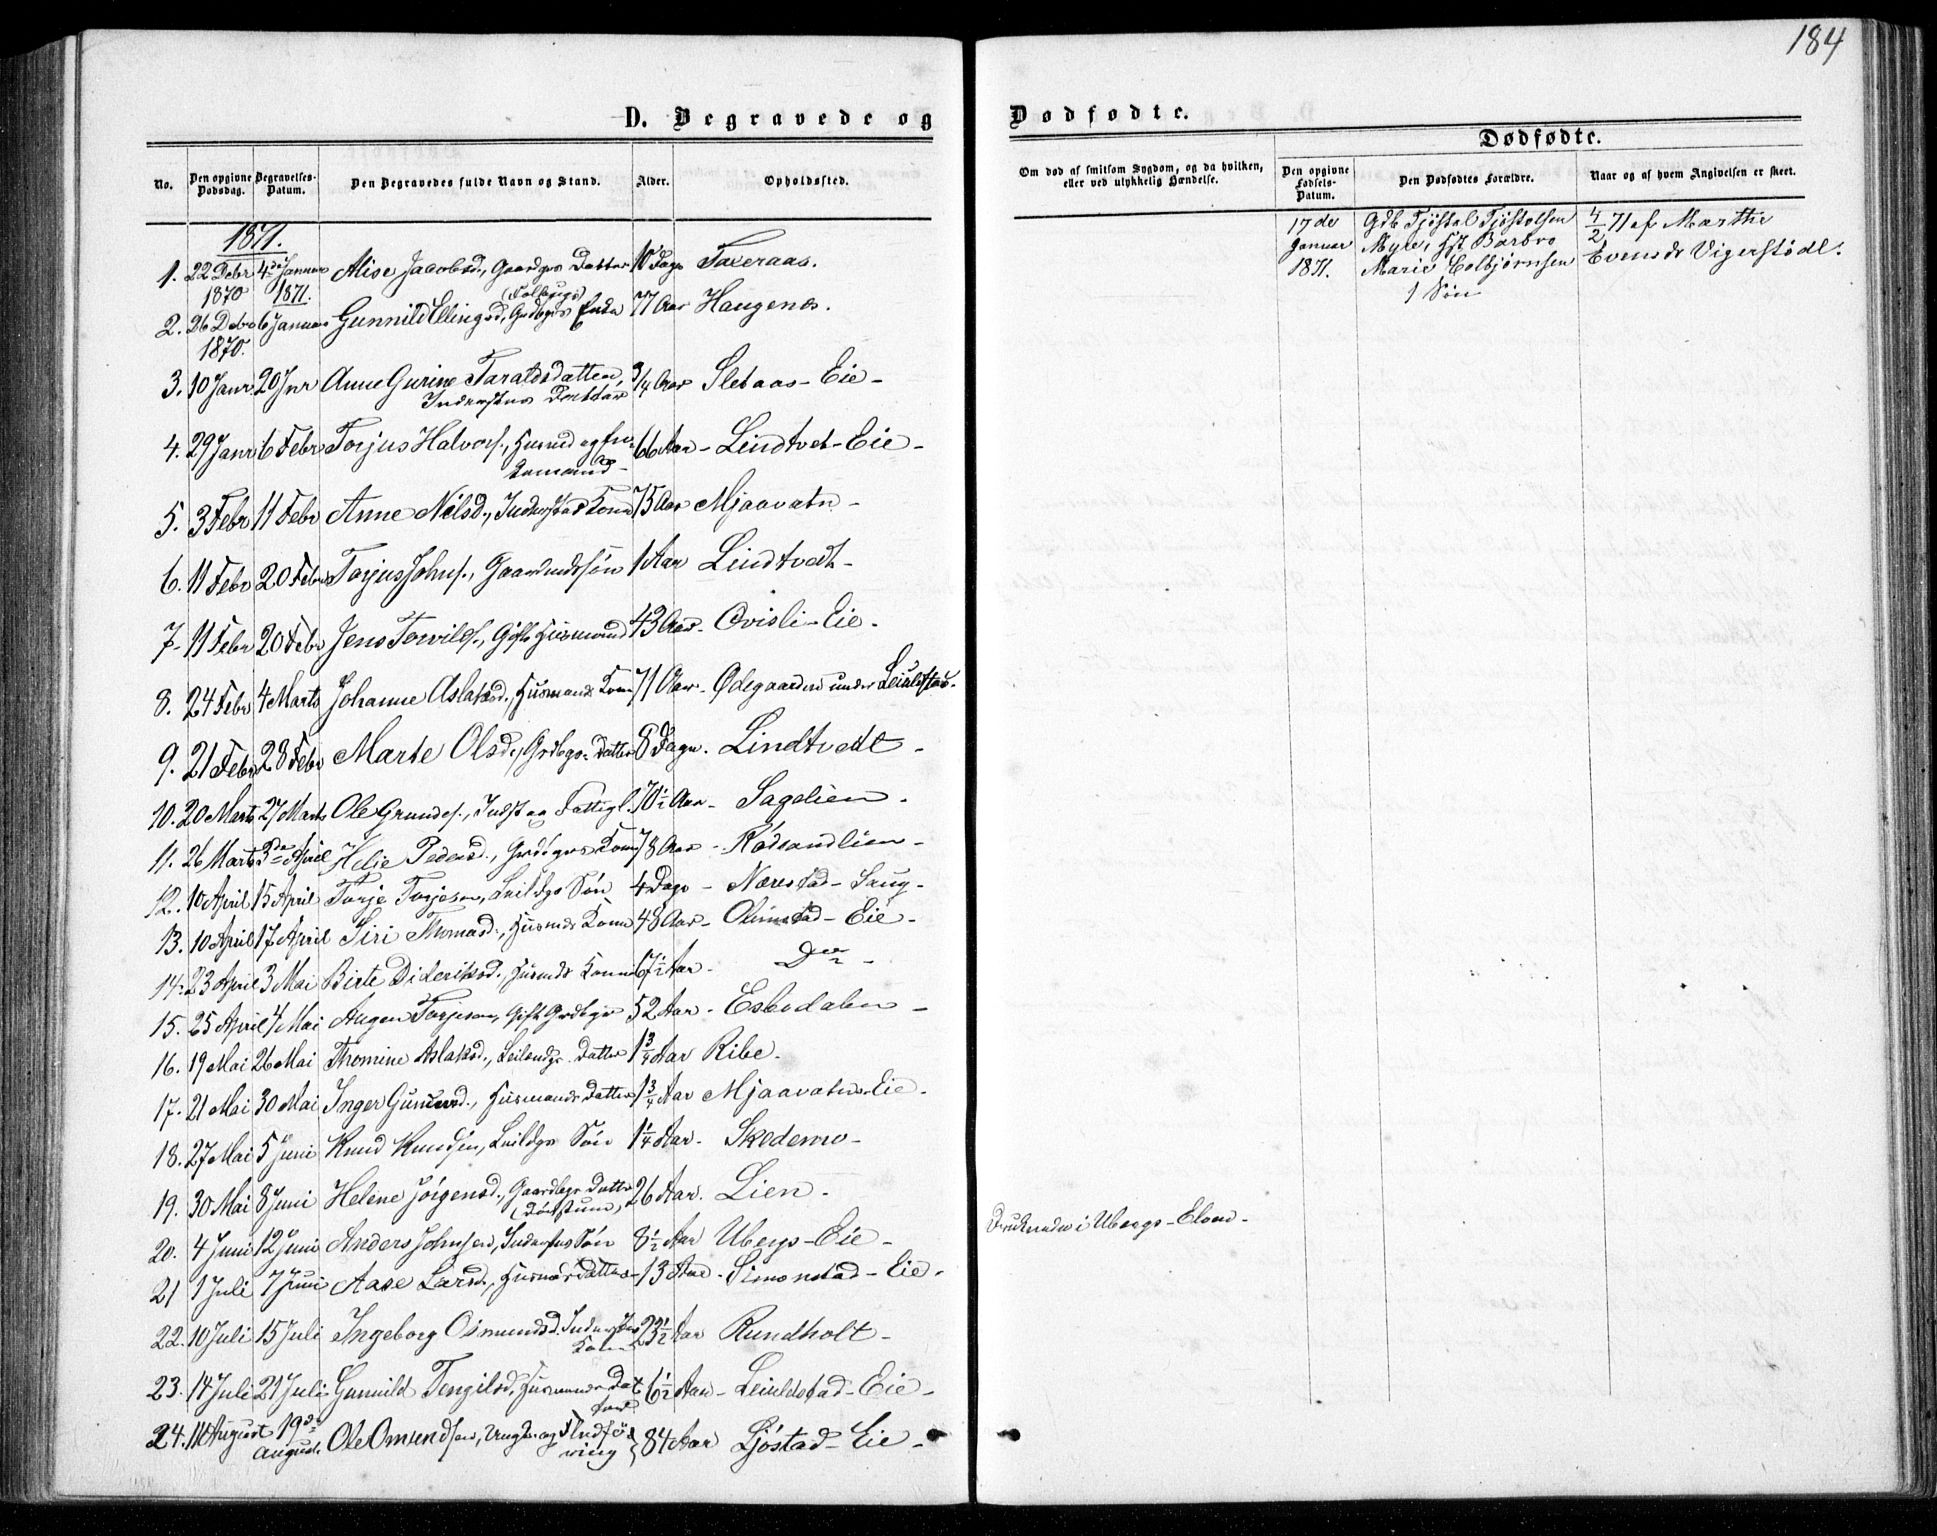 184
D. Begravede og Dødfødte.
Dødfødte.
No. Den opgivne Dødsdag. Begravelses-Datum. Den Begravedes fulde Navn og Stand. Alder. Opholdssted. Om død af smitsom Sygdom, og da hvilken, eller ved ulykkelig Hændelse. Den opgivne Fødsels-Datum. Den Dødfødtes Forældre. Naar og af hvem Angivelsen er skeet.
1871.
1. 22 Debr 1870 4de Januar 1871. Alise Jacobsd., Gaardgrs Datter 10 Dage Faeraas.
2. 26 Debr 1870. 6 Januar Gunnild Ellingsd, Grdbgrs Enke 77 Aar Haugenes.
3. 10 Janr 20 Jnr Anne Gurine Taraldsdatter,
Inderstes Datter 3/4 Aar Slebaas-Eie-
4. 29 Janr 6 Febr Torjus Halvors., Husmd og 66 Aar - Lindtvet-Eie-
5. 3 Febr 11 Febr Anne Nilsd., Inderstes Kone 75 Aar Mjaavatn-
6. 11 Febr 20 Febr Torjus Johns., Gaardmdssøn 1 Aar Lindtvedt-
7- 11 Febr 20 Febr Jens Torvilds., Gift Husmand 43 Aar- Qvisli-Eie-
8. 24 Febr 4 Marts Johanne Aslaksd., Husmands Kone 71 Aar- Ødegaarden under
9. 21 Febr 28 Febr Marte Olsd., Grdbgrs Datter 8 Dage. Lindtvedt-
10. 20 Marts 27 Marts Ole Grundes., Indst og Fattigl. 70 1/2 Aar- Sagelien-
11. 26 Marts 3die April Helje Pedersd., Grdbgrs Kone 78 Aar- Rødsandlien-
12. 10 April 15 April Torje Torjesen, Leildgs Søn 4 Dage - Nærestad-Laug-
13. 10 April 17 April Siri Thomasd., Husmds Kone 48 Aar- Olimstad-Eie-
14. 23 April 3 Mai Birte Dideriksd., Husmds Kone 67 1/2 Aar- Do-
15. 25 April 4 Mai Augen Torjesen, Gift Grdbgr 52 Aar- Esbedalen-
16. 19 Mai 26 Mai Thomine Aslaksd., Leilendgs Datter 1 3/4 Aar Ribe-
17- 21 Mai 30 Mai Inger Gunersd., Husmands Datter 1 3/4 Aar Mjaavatns-Eie-
18. 27 Mai 5 Juni Knud Knudsen, Leildgs Søn 1 1/4 Aar- Skedemo-
19. 30 Mai 8 Juni Helene Jørgensd., Gaardbgrs Datter
(Døvstum) 26 Aar. Lien-
20. 4 Juni 12 Juni Anders Johnsen, Inderstes Søn 8 1/2 Aar Ubergs-Eie- Druknede i Ubergs-Elven-
21 1 Juli 7 Juni Aase Larsd., Husmds Datter- 13 Aar- Simonstad-Eie-
22. 10 Juli 15 Juli Ingeborg Osmundsd. Inderstes
Kone 23 1/2 Aar Rundholt-
23. 14 Juli 21 Juli Gunnild Tengilsd, Husmands Dat
ter 6 1/2 Aar- Leiulstad-Eie-
24. 11 August 19de August Ole Omundsen, Ungk. og Indfø
ring 84 Aar Ljøstad-Eie-
17de Januar 1871. Gdb Tjøstel Tjøstelsen
Myre, Hst Barbro
Marie Colbjørnsen
1 Søn
4/2 71 af Marthe
Evensdr Vigerstødl.